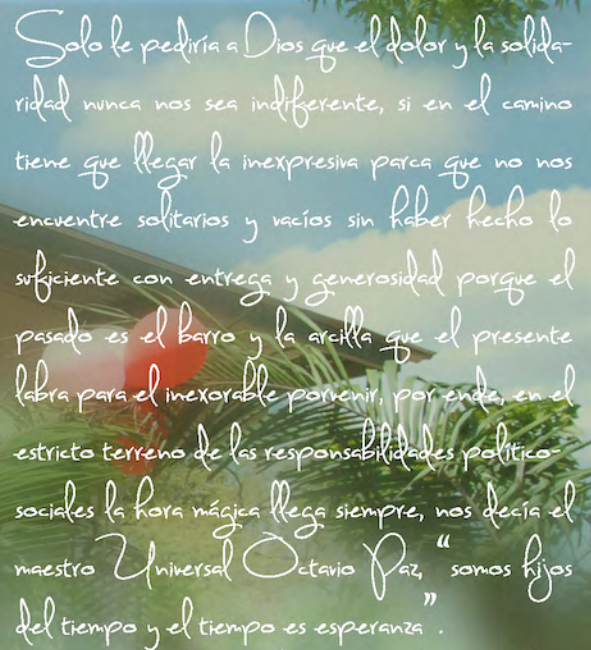 Solo le pediría a Dios que el dolor y la solida-
ridad nunca nos sea indiferente, si en el camino
tiene que llegar la inexpresiva parca que no nos
encuentre solitarios y vacíos sin haber hecho lo
suficiente con entrega y generosidad porque el
pasado es el barro y la arcilla que el presente
labra para el inexorable porvenir, por ende, en el
estricto terreno de las responsabilidades político-
sociales la hora mágica llega siempre, nos decía el
maestro Universal Octavio Paz, “somos hijos
del tiempo y el tiempo es esperanza”.